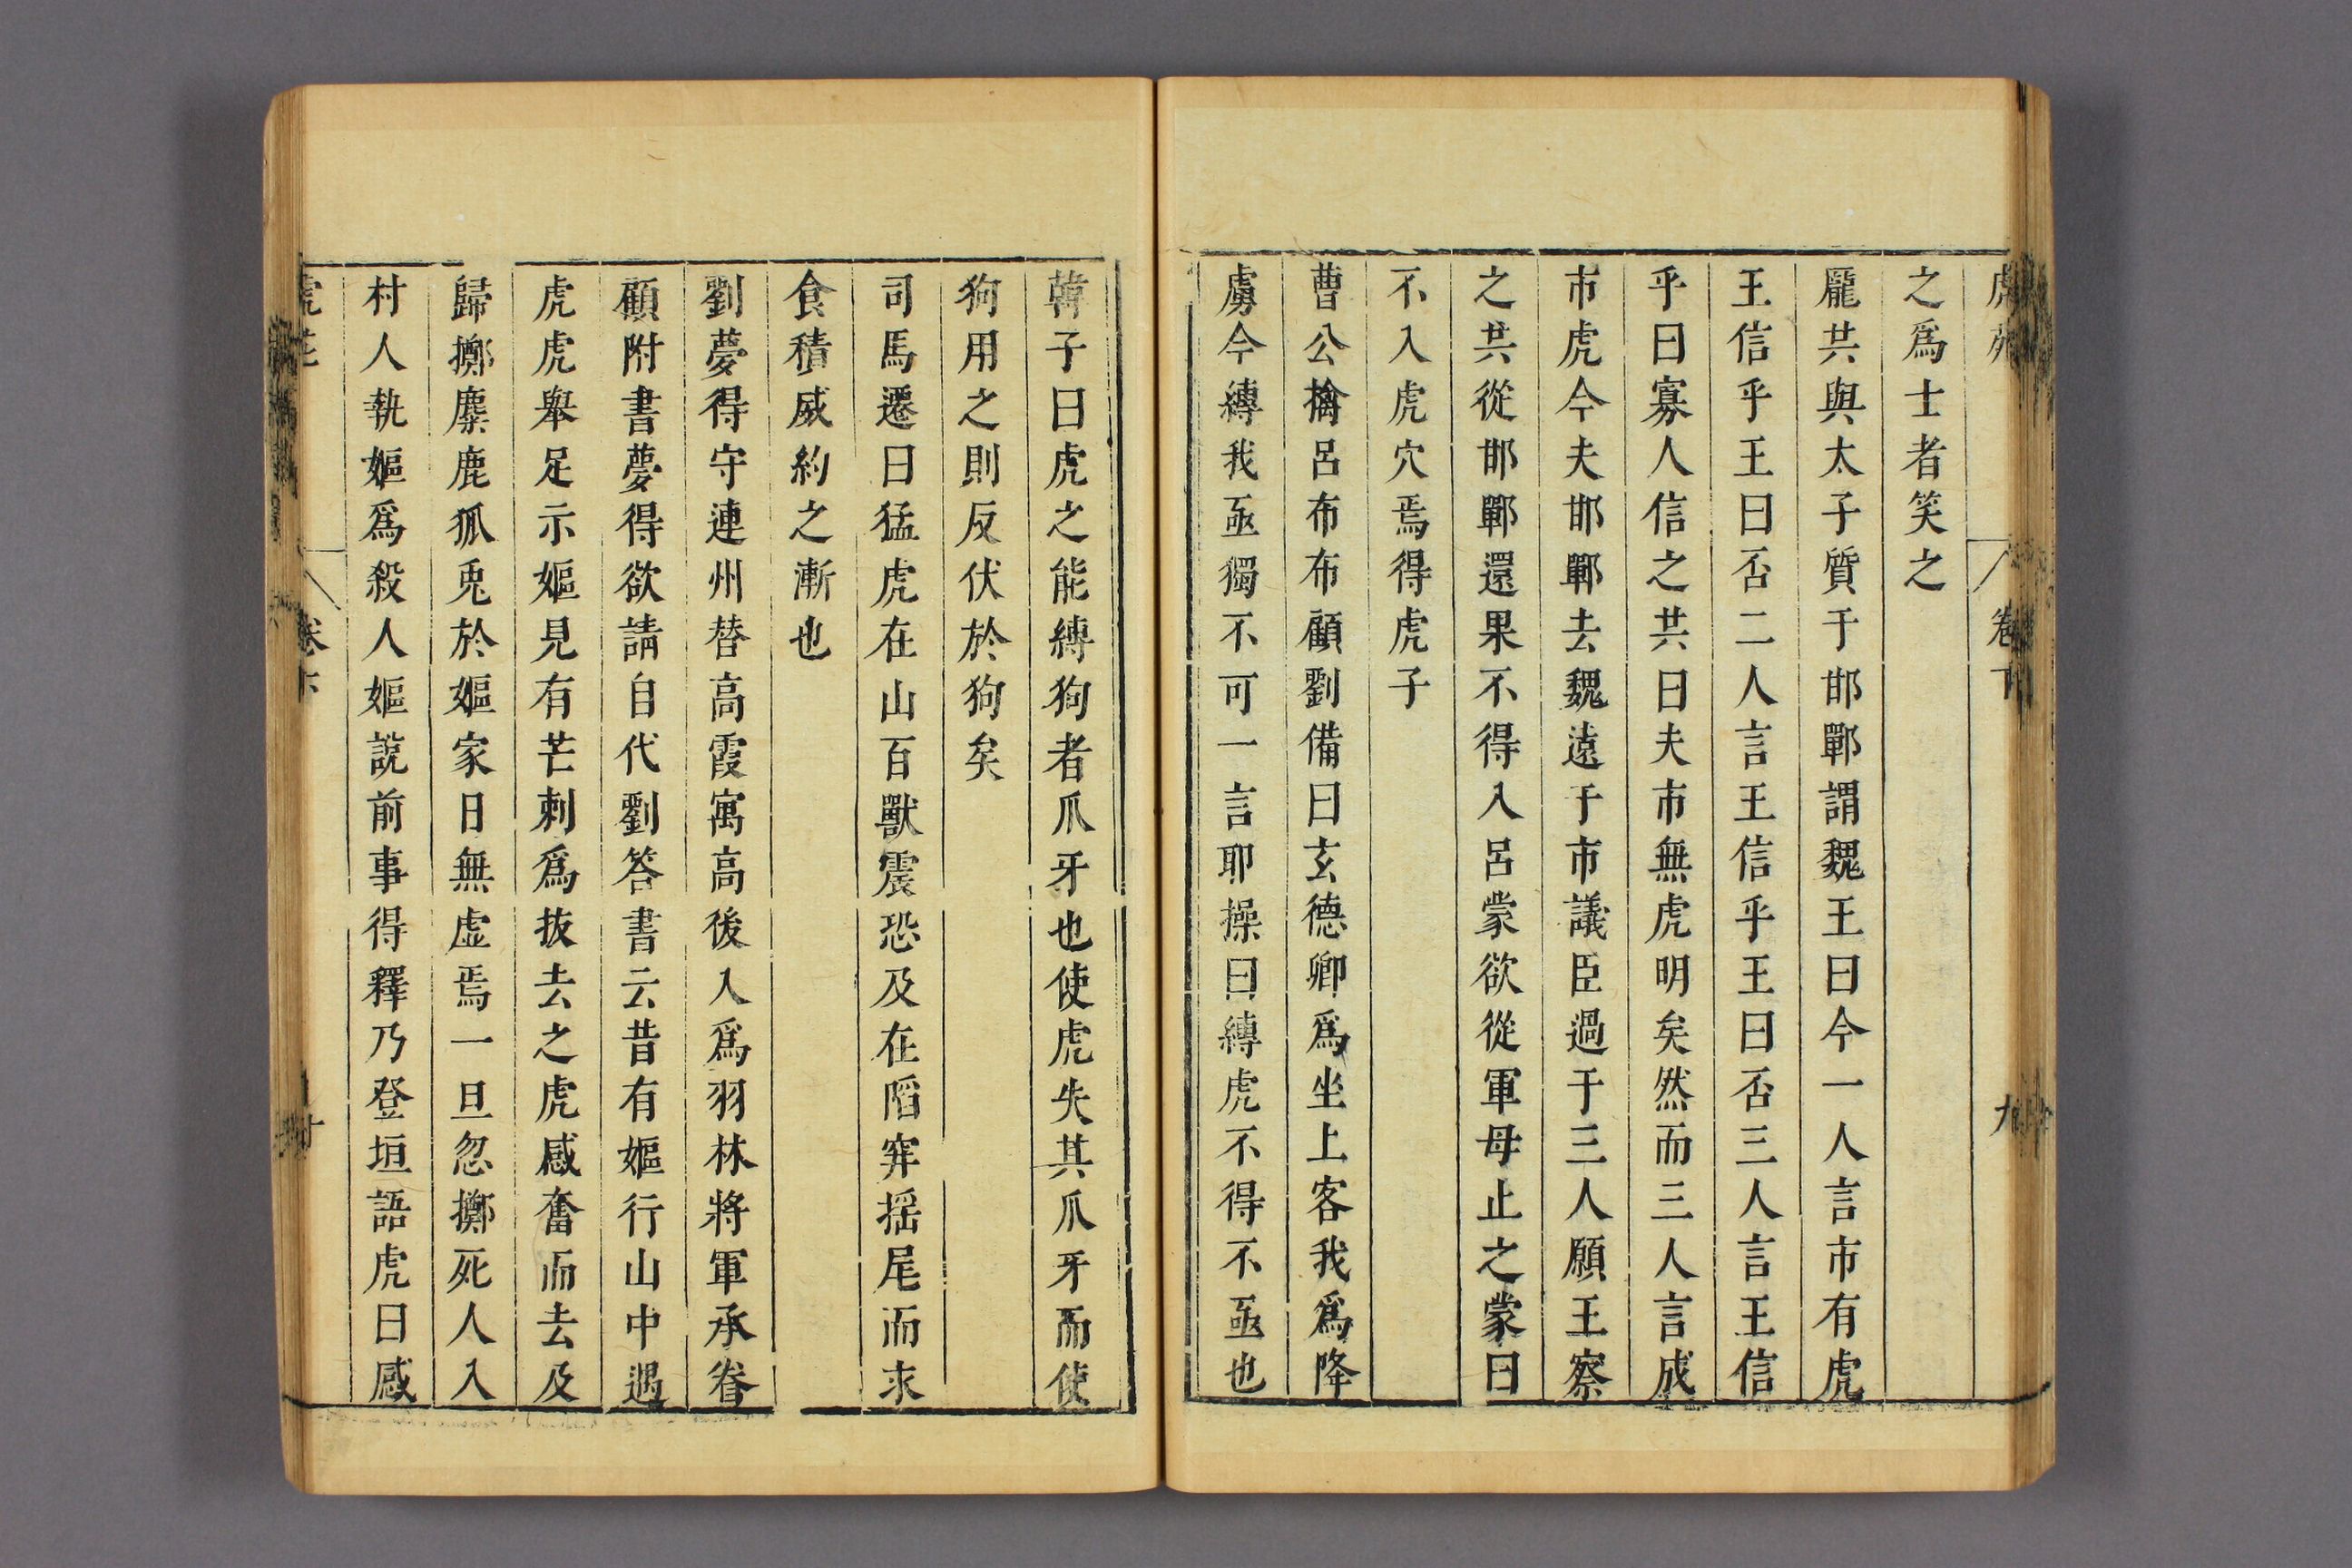 虎苑 卷下 九
之爲士者笑之
龎共與太子質于邯鄲謂魏王曰今一人言市有虎
王信乎王曰否二人言王信乎王曰否三人言王信
乎曰寡人信之共曰夫市無虎明矣然而三人言成
市虎今夫邯鄲去魏遠于市議臣過于三人願王察
之共從邯鄲還果不得入呂蒙欲從軍母止之蒙曰
不入虎穴焉得虎子
曹公擒呂布布顧劉備曰玄德卿爲坐上客我爲降
虜今縛我亟獨不可一言耶操曰縛虎不得不亟也
韓子曰虎之能縛狗者爪牙也使虎失其爪牙而使
狗用之則反伏於狗矣
司馬遷曰猛虎在山百獸震恐及在䧟穽揺尾而求
食積威約之漸也
劉夢得守連州替高霞寓高後入爲羽林將軍承眷
顧附書夢得欲請自代劉答書云昔有嫗行山中遇
虎虎舉足示嫗見有芒刺爲抜去之虎感奮而去及
歸擲麋鹿狐兎於嫗家日無虛焉一旦忽擲死人入
村人執嫗爲殺人嫗說前事得釋乃登垣語虎曰感
虎苑 卷下 十